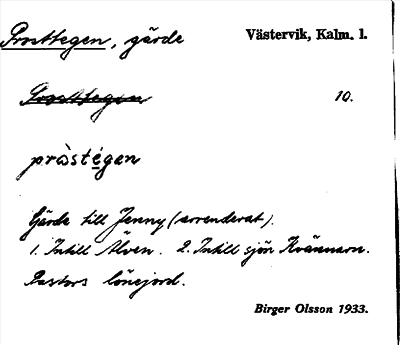 Prosttegen, gärde Västervik, Kalm. l.
Prosttegen 10.
pròstégen
Gärde till Jenny (arrenderat).
1. Intill Älven. 2. Intill sjön Kvännarn.
Pastors lönejord.
Birger Olsson 1933.